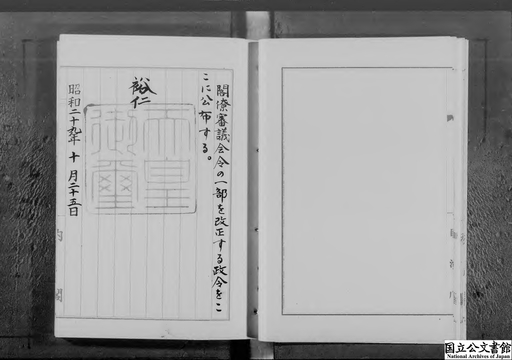 閣僚審議会令の一部を改正する政令をこ
こに公布する。
裕仁
天皇
御璽
昭和二十九年十月二十五日
内閣
国立公文書館
National Archives of Japan